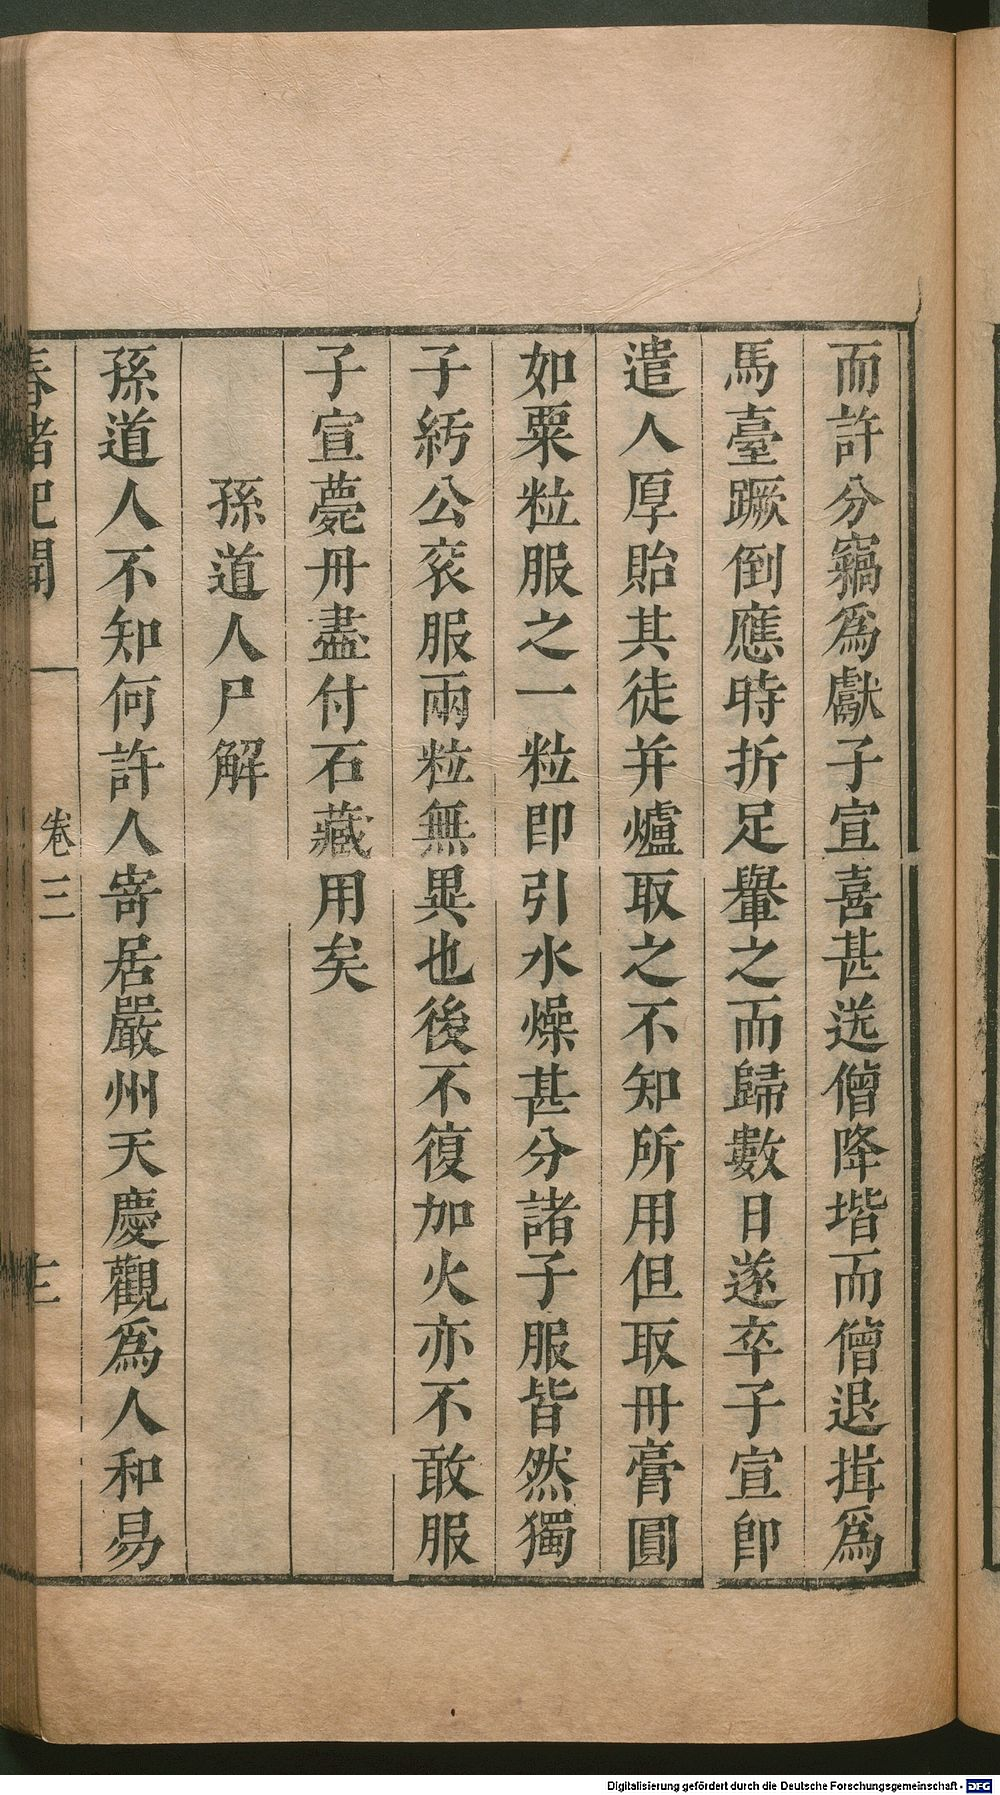 而許分竊爲獻子宣喜甚送僧降堦而僧退揖爲
馬臺蹶倒應時折足轝之而歸數日遂卒子宣卽
遣人厚貽其徒并爐取之不知所用但取丹膏圓
如粟粒服之一粒卽引水燥甚分諸子服皆然獨
子紆公衮服兩粒無異也後不復加火亦不敢服
子宣薨丹盡付石藏用矣
孫道人尸解
孫道人不知何許人寄居嚴州天慶觀爲人和易
春渚紀聞 卷三
Digitalisierung gefördert durch die Deutsche Forschungsgemeinschaft - DFG